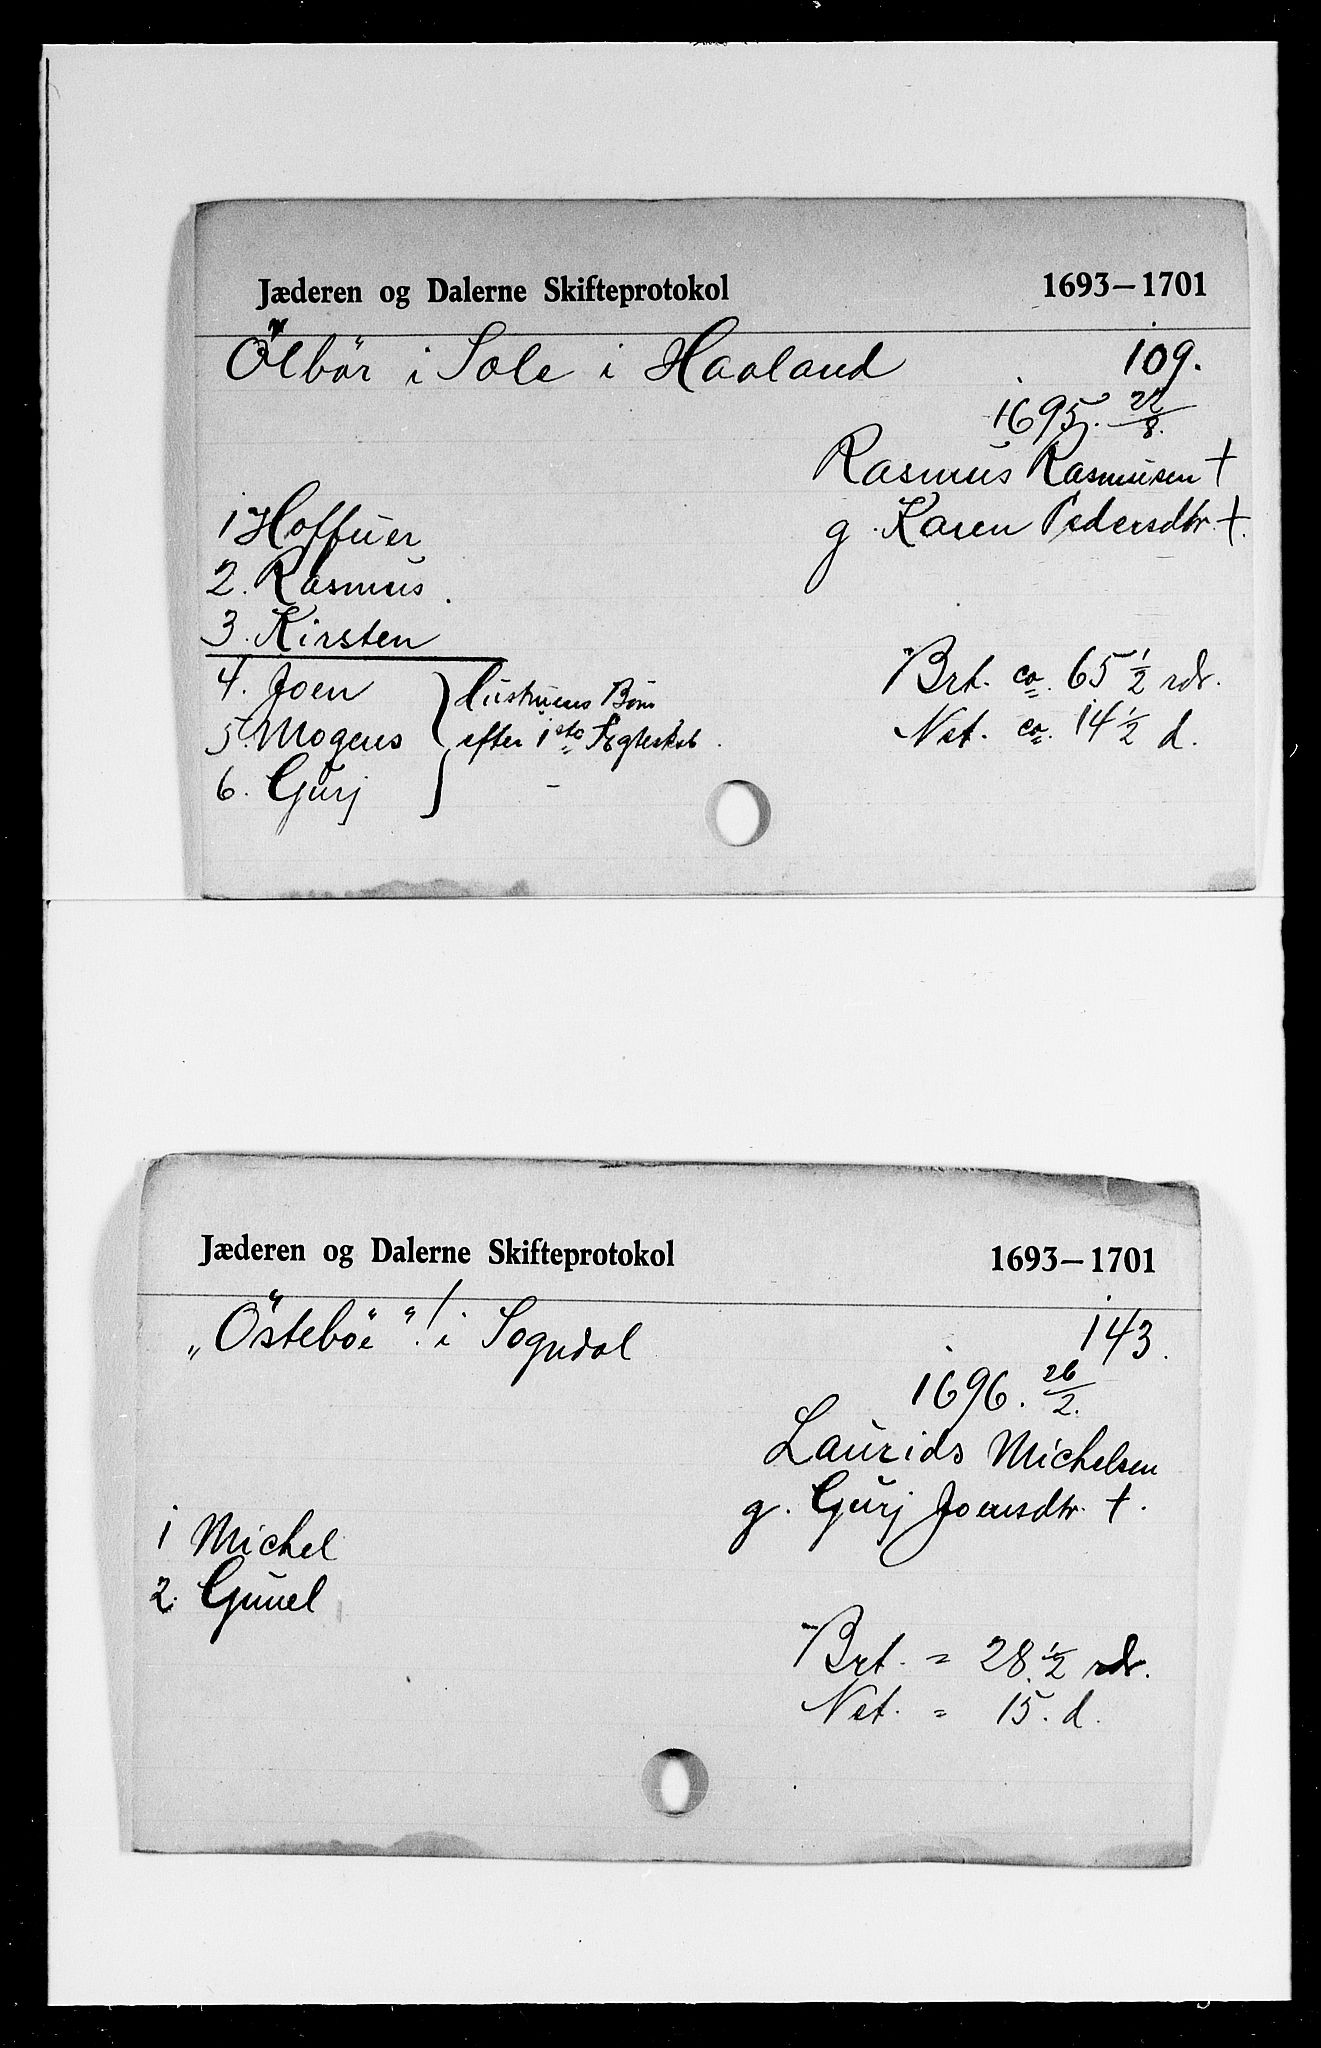 Jæderen og Dalerne Skifteprotokol 1693–1701
Ölbör i Sole i Haaland 109.
1695. 22/8.
Rasmus Rasmusen †
g. Karen Pedersdtr. †.
1 Hoffuer
2. Rasmus.
3. Kirsten
4. Joen
5. Mogens
6. Gurj
Hustruens Börn
efter 1ste Ægteskab.
Brt. ca. 65 1/2 rdr.
Net. ca. 14 1/2 d.
Jæderen og Dalerne Skifteprotokol 1693–1701
„Östeböe"! i Sogndal 143.
1696. 26/2.
Laurids Michelsen
g. Gurj Joensdtr. †.
1 Michel
2. Gunel
Brt. = 28 1/2 rdr.
Net. = 15. d.